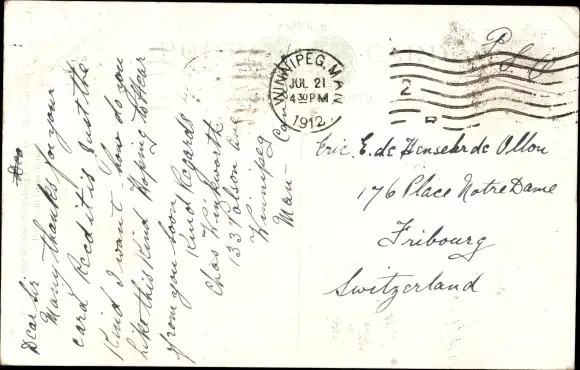 Dear Sir
Many thanks for your
card Recd it is Just the
Kind I want how do you
like this Kind Hoping to Hear
from you soon
Kind Regards
Chas
133 Polson Ave
Winnipeg
Man - Can
WINNIPEG, MAN
JUL 21
4 30 PM
1912
2
Eric E. de
176 Place Notre Dame
Fribourg
Switzerland